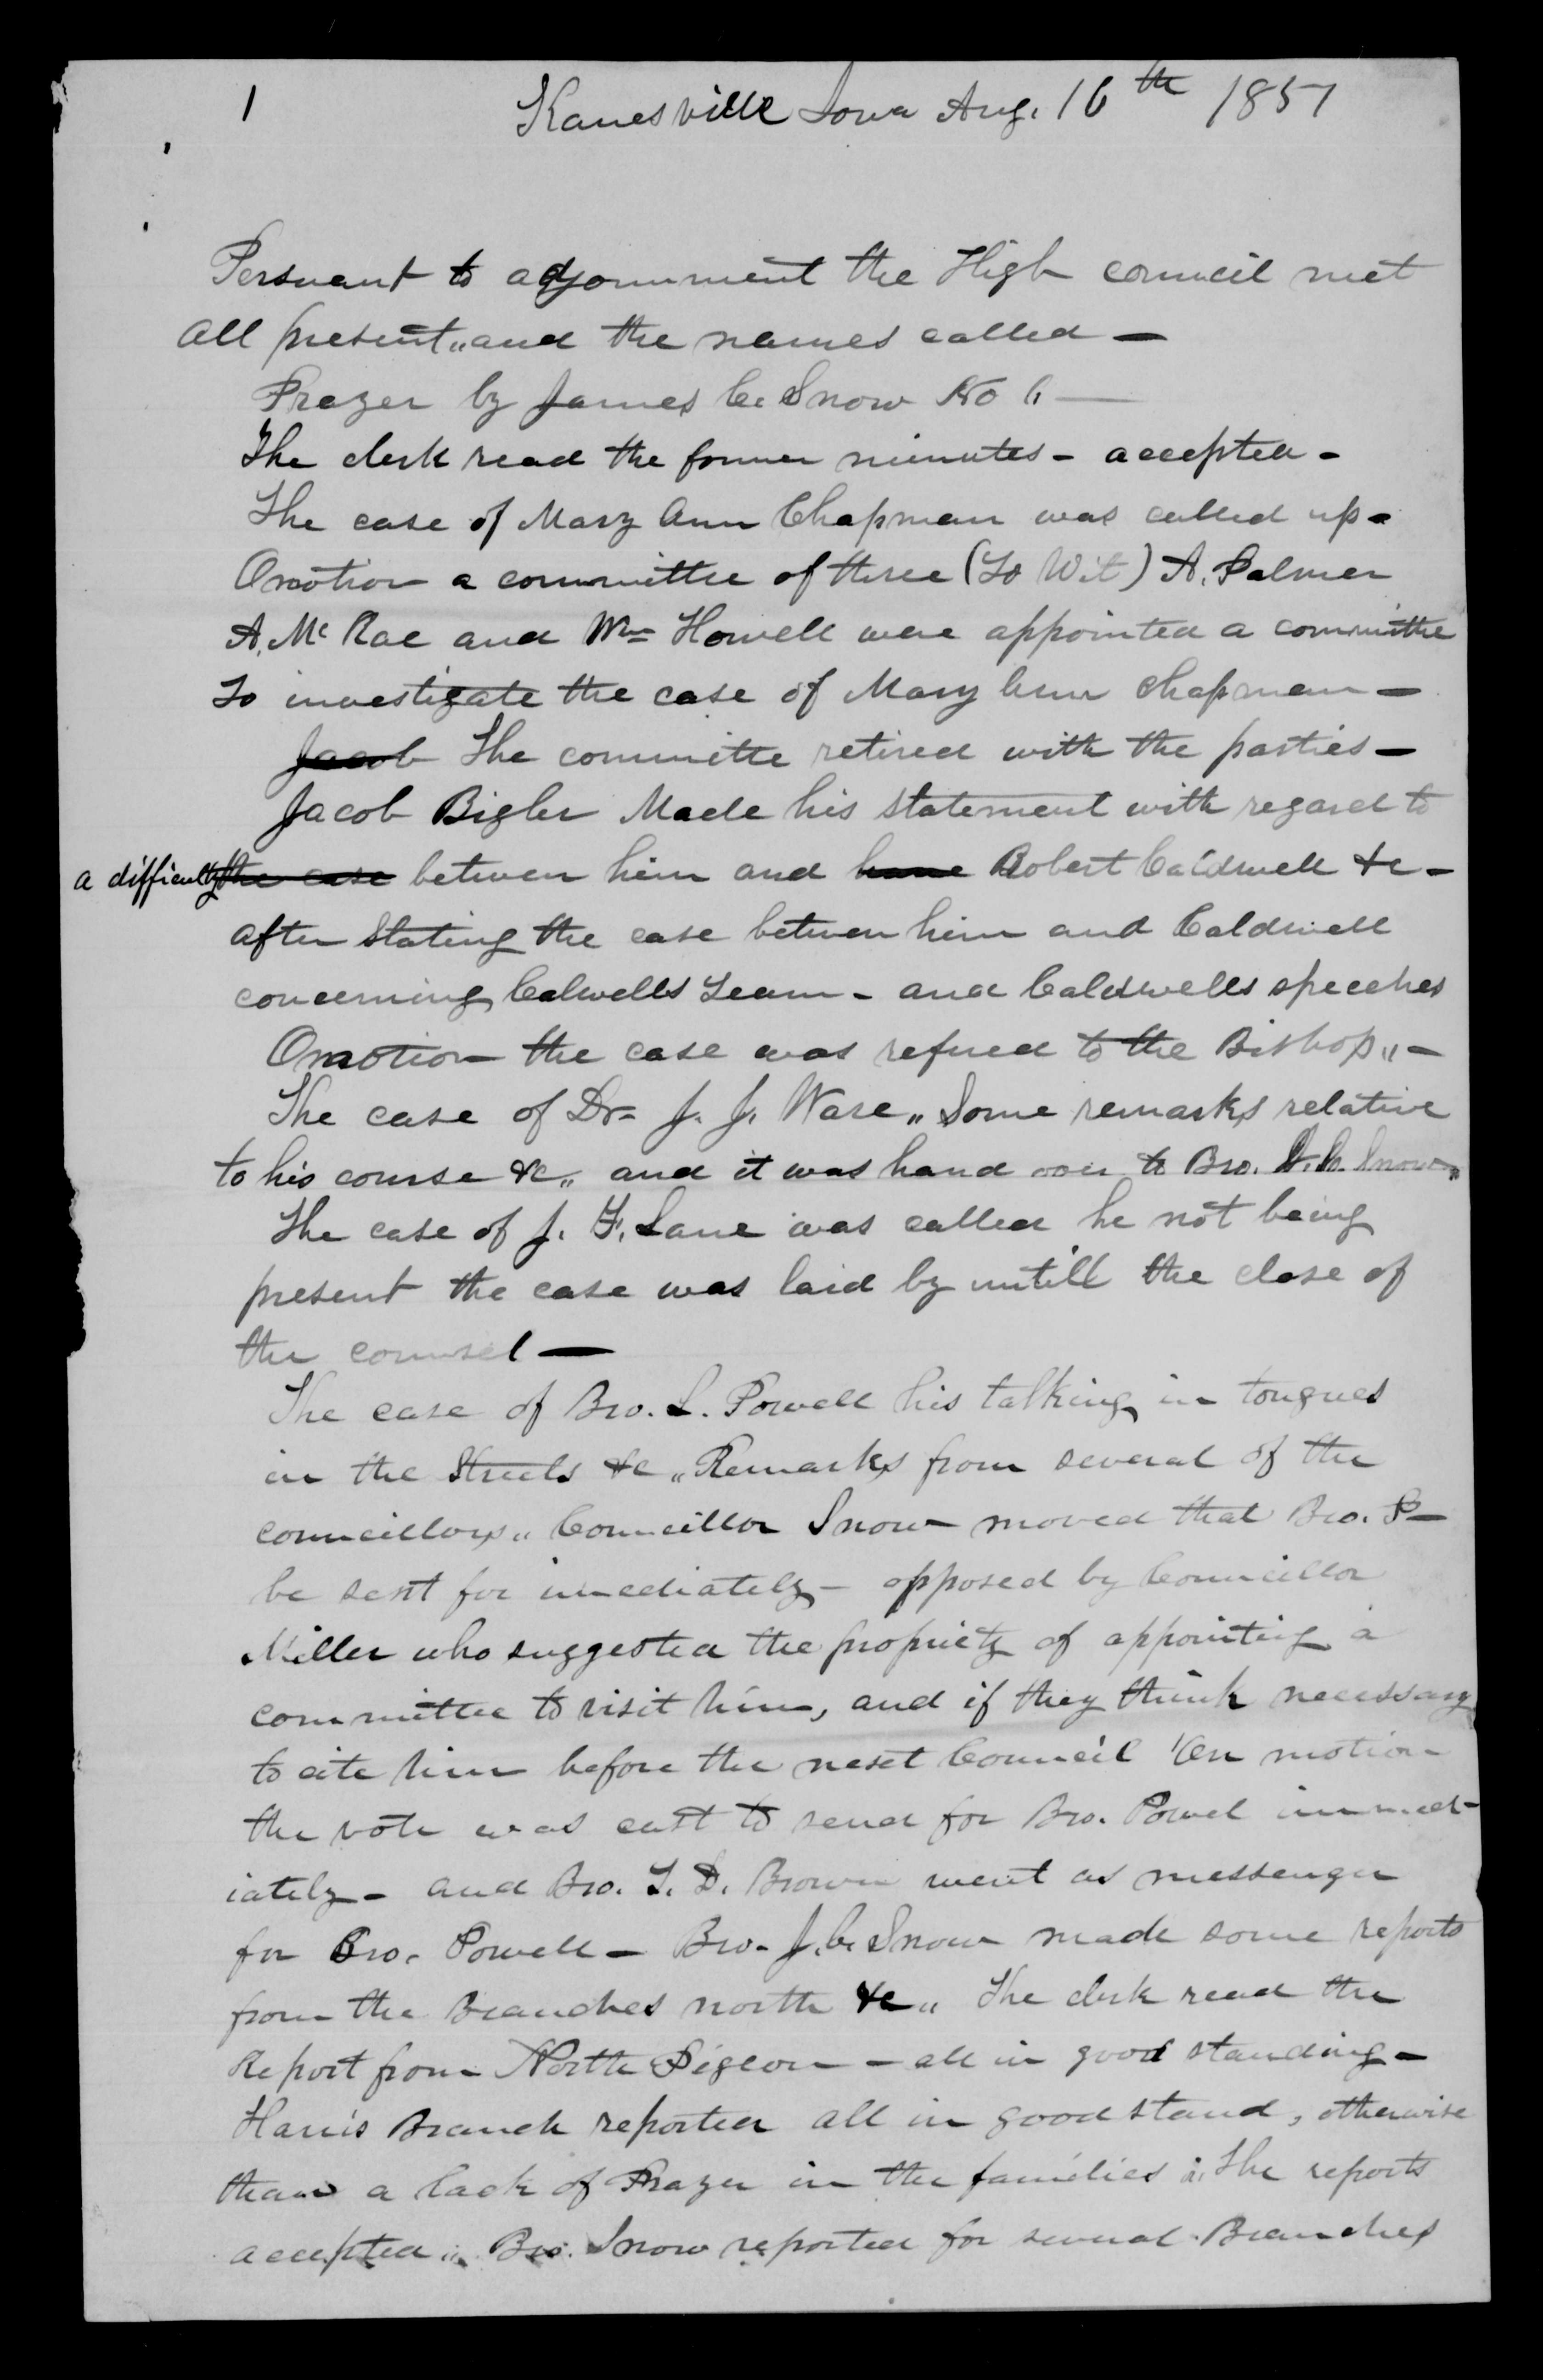 1 Kanesville Iowa Aug. 16th 1851
Persuant to adjournment the High council met
all present,, and the names called —
Prayer by James C. Snow No 6 —
The clerk read the former minutes - accepted -
The case of Mary Ann Chapman was called up -
Omotion a committee of three (To Wit) A. Palmer
A. McRae and Wm Howell were appointed a committe
To investigate the case of Mary Ann Chapman —
Jacob The committe retired with the parties —
Jacob Bigler Made his statement with regard to
a difficulty the case between him and have Robert Caldwell &c -
after stating the case between him and Caldwell
concerning Calwells Team - and Caldwells speeches
Omotion the case was refured to the Bishop,, -
The case of Dr. J. J. Ware,, Some remarks relative
to his course &c,, and it was hand over to Bro. J. C. Snow,,
The case of J. F. Lane was called he not being
present the case was laid by untill the close of
the counsel —
The case of Bro. L. Powell his talking in tongues
in the Streets &c,, Remarks from several of the
councillors,, Councillor Snow moved that Bro. P—
be sent for imediately - opposed by Councillor
Miller who suggested the propriety of appointing a
committee to visit him, and if they think necessary
to cite him before the next Council On motion
the vote was cast to send for Bro. Powel immed-
iately - and Bro. T. D. Brown went as messenger
for Bro. Powell — Bro. J. C. Snow made some reports
from the Branches north &c,, The clerk read the
Report from North Pigeon - all in good standing -
Harris Branch reported all in good stand, otherwise
than a lack of Prayer in the families ,, The reports
accepted ,, Bro. Snow reported for several Branches